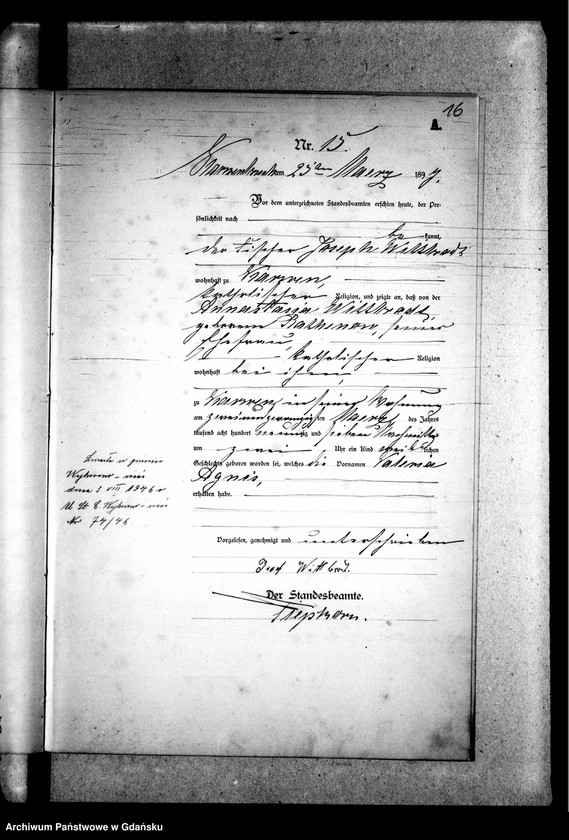 16
A.
Nr. 15
am 25ten Maerz 1897.
Vor dem unterzeichneten Standesbeamten erschien heute, der Per-
sönlichkeit nach
be kannt,
der Fischer Joseph Wittbrodt
wohnhaft zu Karwen,
katholischer Religion, und zeigte an, daß von der
Annastasia Wittbrodt,
geborenen Rathenow, seiner
Ehefrau,
katholischer Religion
wohnhaft bei ihm,
zu Karwen in seiner Wohnung
am zweiundzwanzigsten Maerz des Jahres
tausend acht hundert neunzig und sieben Nachmittags
um zwei Uhr ein Kind weiblichen
Geschlechts geboren worden sei, welches die Vornamen
Agnes,
erhalten habe.
Vorgelesen, genehmigt und unterschrieben
Josef Wittbrodt.
Der Standesbeamte.
Zmarła w gminie
dnia VIII 1946 r
Nr 74/46
Archiwum Państwowe w Gdańsku